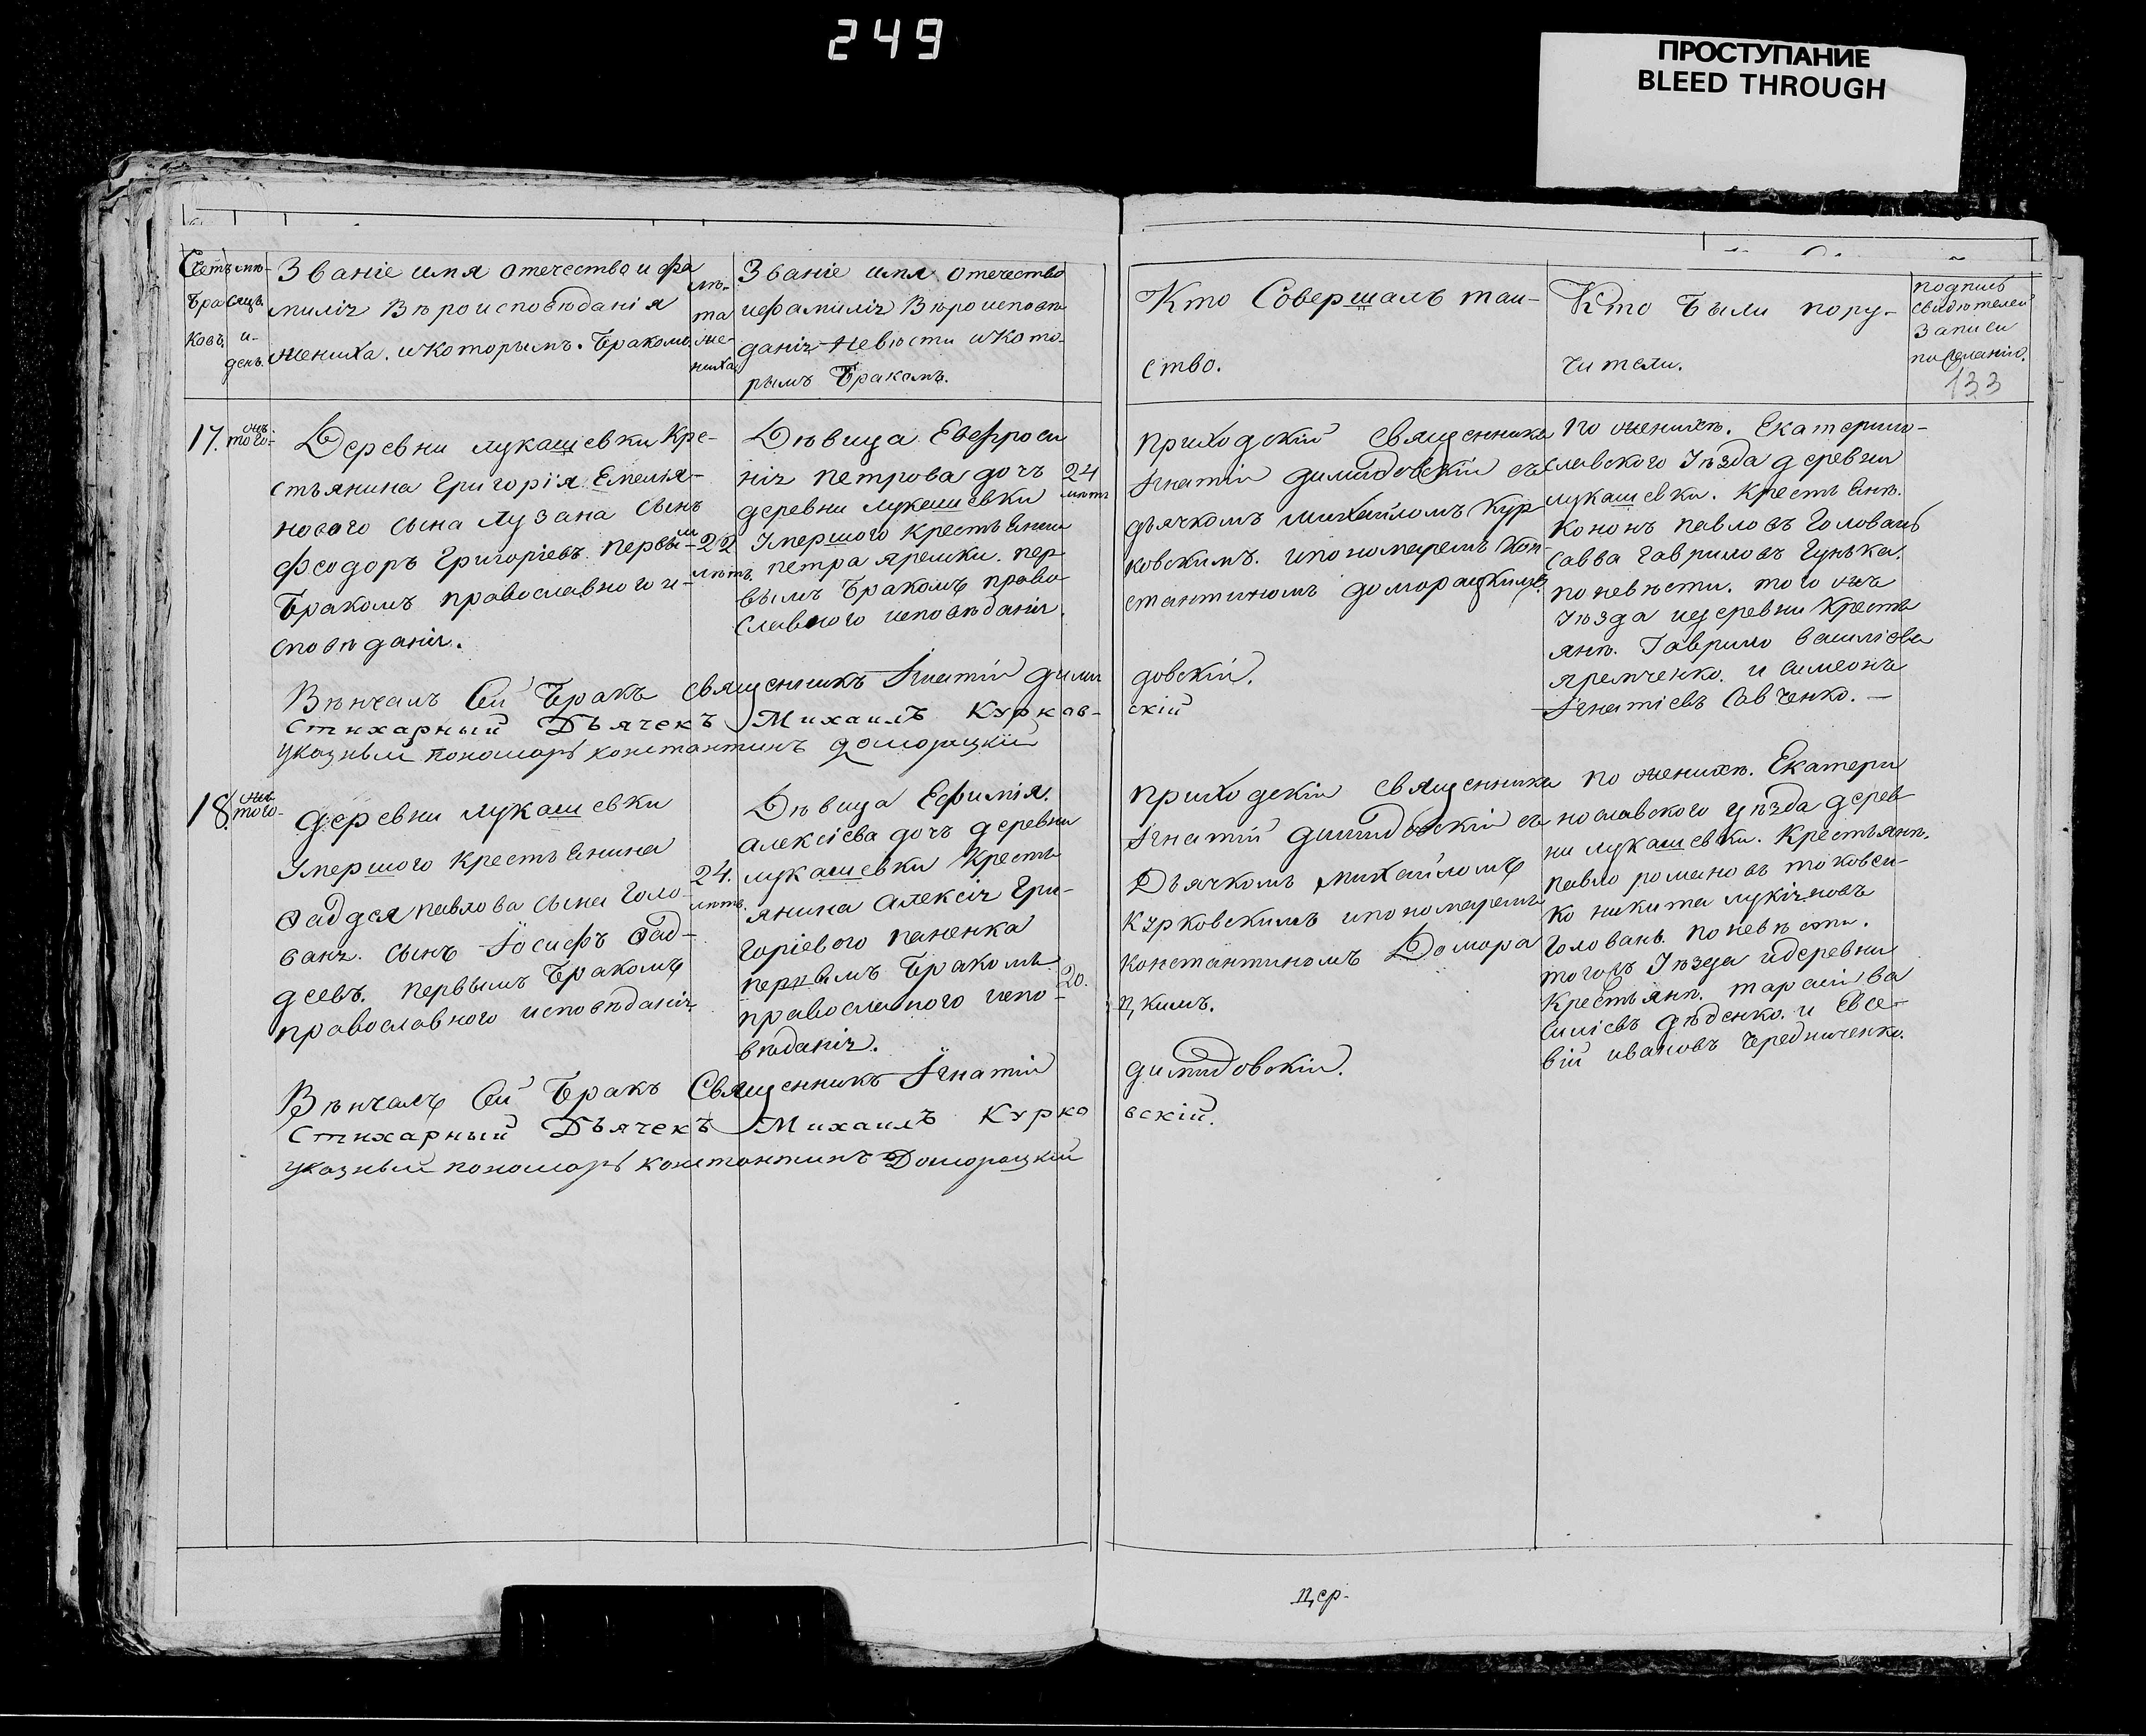 249
ПРОСТУПАНИЕ
BLEED THROUGH
Счетъ
бра
ковъ
мѣ-
сяцъ
и
день.
Званіе имя отечество и фа
миліи Вѣроисповѣданія
жениха. и которымъ. бракомъ.
лѣ-
та
же-
ниха
Званіе имя отечество
и фамиліи Вѣроисповѣ
даніи невѣсти и кото-
рымъ бракомъ.
Кто Совершалъ таи-
ство.
Кто были пору-
чители.
подпись
свидѣтелей
записи
по желанію.
133
17.
того-
жъ
Деревни лукашевки Кре-
стьянина Григорія Емелія-
нового сына Лузана сынъ
Феодоръ Григоріевъ первым
бракомъ православного и-
сповѣданіи.
22
лѣтъ.
Дѣвица Евфроси
нія петрова дочъ
деревни лукашевки
Умершого Крестьянина
петра ярешки. пер
вымъ бракомъ право
славного исповѣданіи.
24
лѣтъ
приходскій священникъ
Ігнатій димидовскій съ
дьячкомъ михайломъ Кур
ковскимъ. и пономаремъ Кон-
стантиномъ доморацкимъ.
По женихѣ. Екатерино-
славского Уѣзда деревни
лукашевки. Крестьянѣ.
Кононъ павловъ Головань
Савва Гавриловъ Гунька.
по невѣсти. того жъ
Уѣзда и деревни Кресть
янѣ. Гаврило василіевъ
яремченко. и симеонъ
Ігнатіевъ Савченко. —
Вѣнчалъ Сей бракъ священникъ Ігнатій дими довскій.
Стихарный Дьячекъ Михаилъ Курков- скій
указный пономарь константинъ доморацкій
18.
того-
жъ
деревни лукашевки
Умершого Крестьянина
Фаддея павлова сына Голо
ваня. сынъ Іосифъ Фад-
деевъ. первымъ бракомъ
православного исповѣданіи.
24.
лѣтъ.
Дѣвица Ефимія.
алексіева дочъ деревни
лукашевки Кресть
янина Алексія Гри-
горіевого паненка
первымъ бракомъ
православного испо-
вѣданіи.
20.
приходскій священникъ
Ігнатій димидовскій съ
Дьячкомъ михайломъ
Курковскимъ и пономаремъ
Константиномъ Домора
цкимъ.
по женихѣ. Екатери
нославского уѣзда дерев
ни лукашевки. Крестьянѣ.
павло романовъ токовен-
ко никита лукіяновъ
Головань. по невѣсти.
того жъ Уѣзда и деревни
Крестьянѣ. тарасій Ва
силіевъ дѣденко. и Евсе-
вій ивановъ Чередниченко.
Вѣнчалъ Сей бракъ Священникъ Ігнатій димидовскій.
Стихарный Дьячекъ Михаилъ Курко вскій.
указный пономарь константинъ Доморацкій
цер-